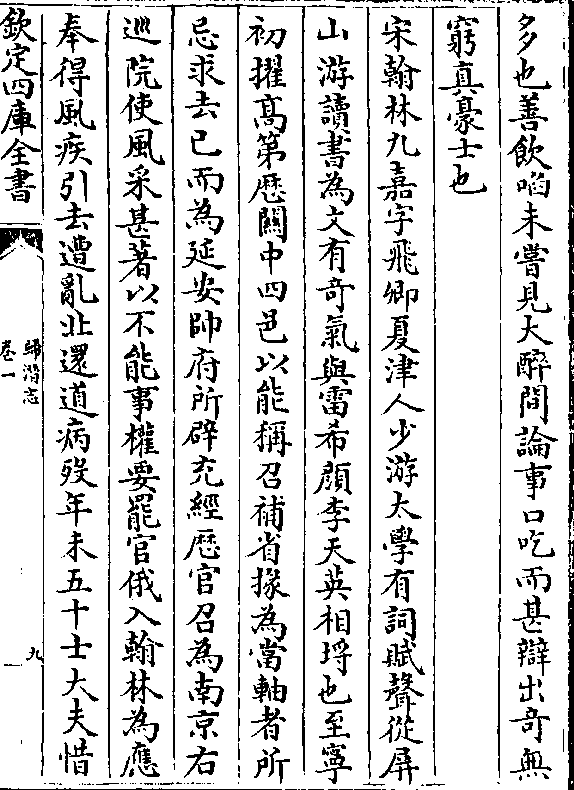 多也善飲啗未嘗見大醉間論事口吃而甚辯出奇無
窮真豪士也
宋翰林九嘉字飛卿夏津人少游太學有詞賦聲從屏
山游讀書為文有奇氣與雷希顔李天英相埒也至寧
初擢髙第歴關中四邑以能稱召補省掾為當軸者所
忌求去已而為延安帥府所辟充經歴官召為南京右
巡院使風采甚著以不能事權要罷官俄入翰林為應
奉得風疾引去遭亂北還道病歿年未五十士大夫惜
欽定四庫全書
歸潛志
卷一
九